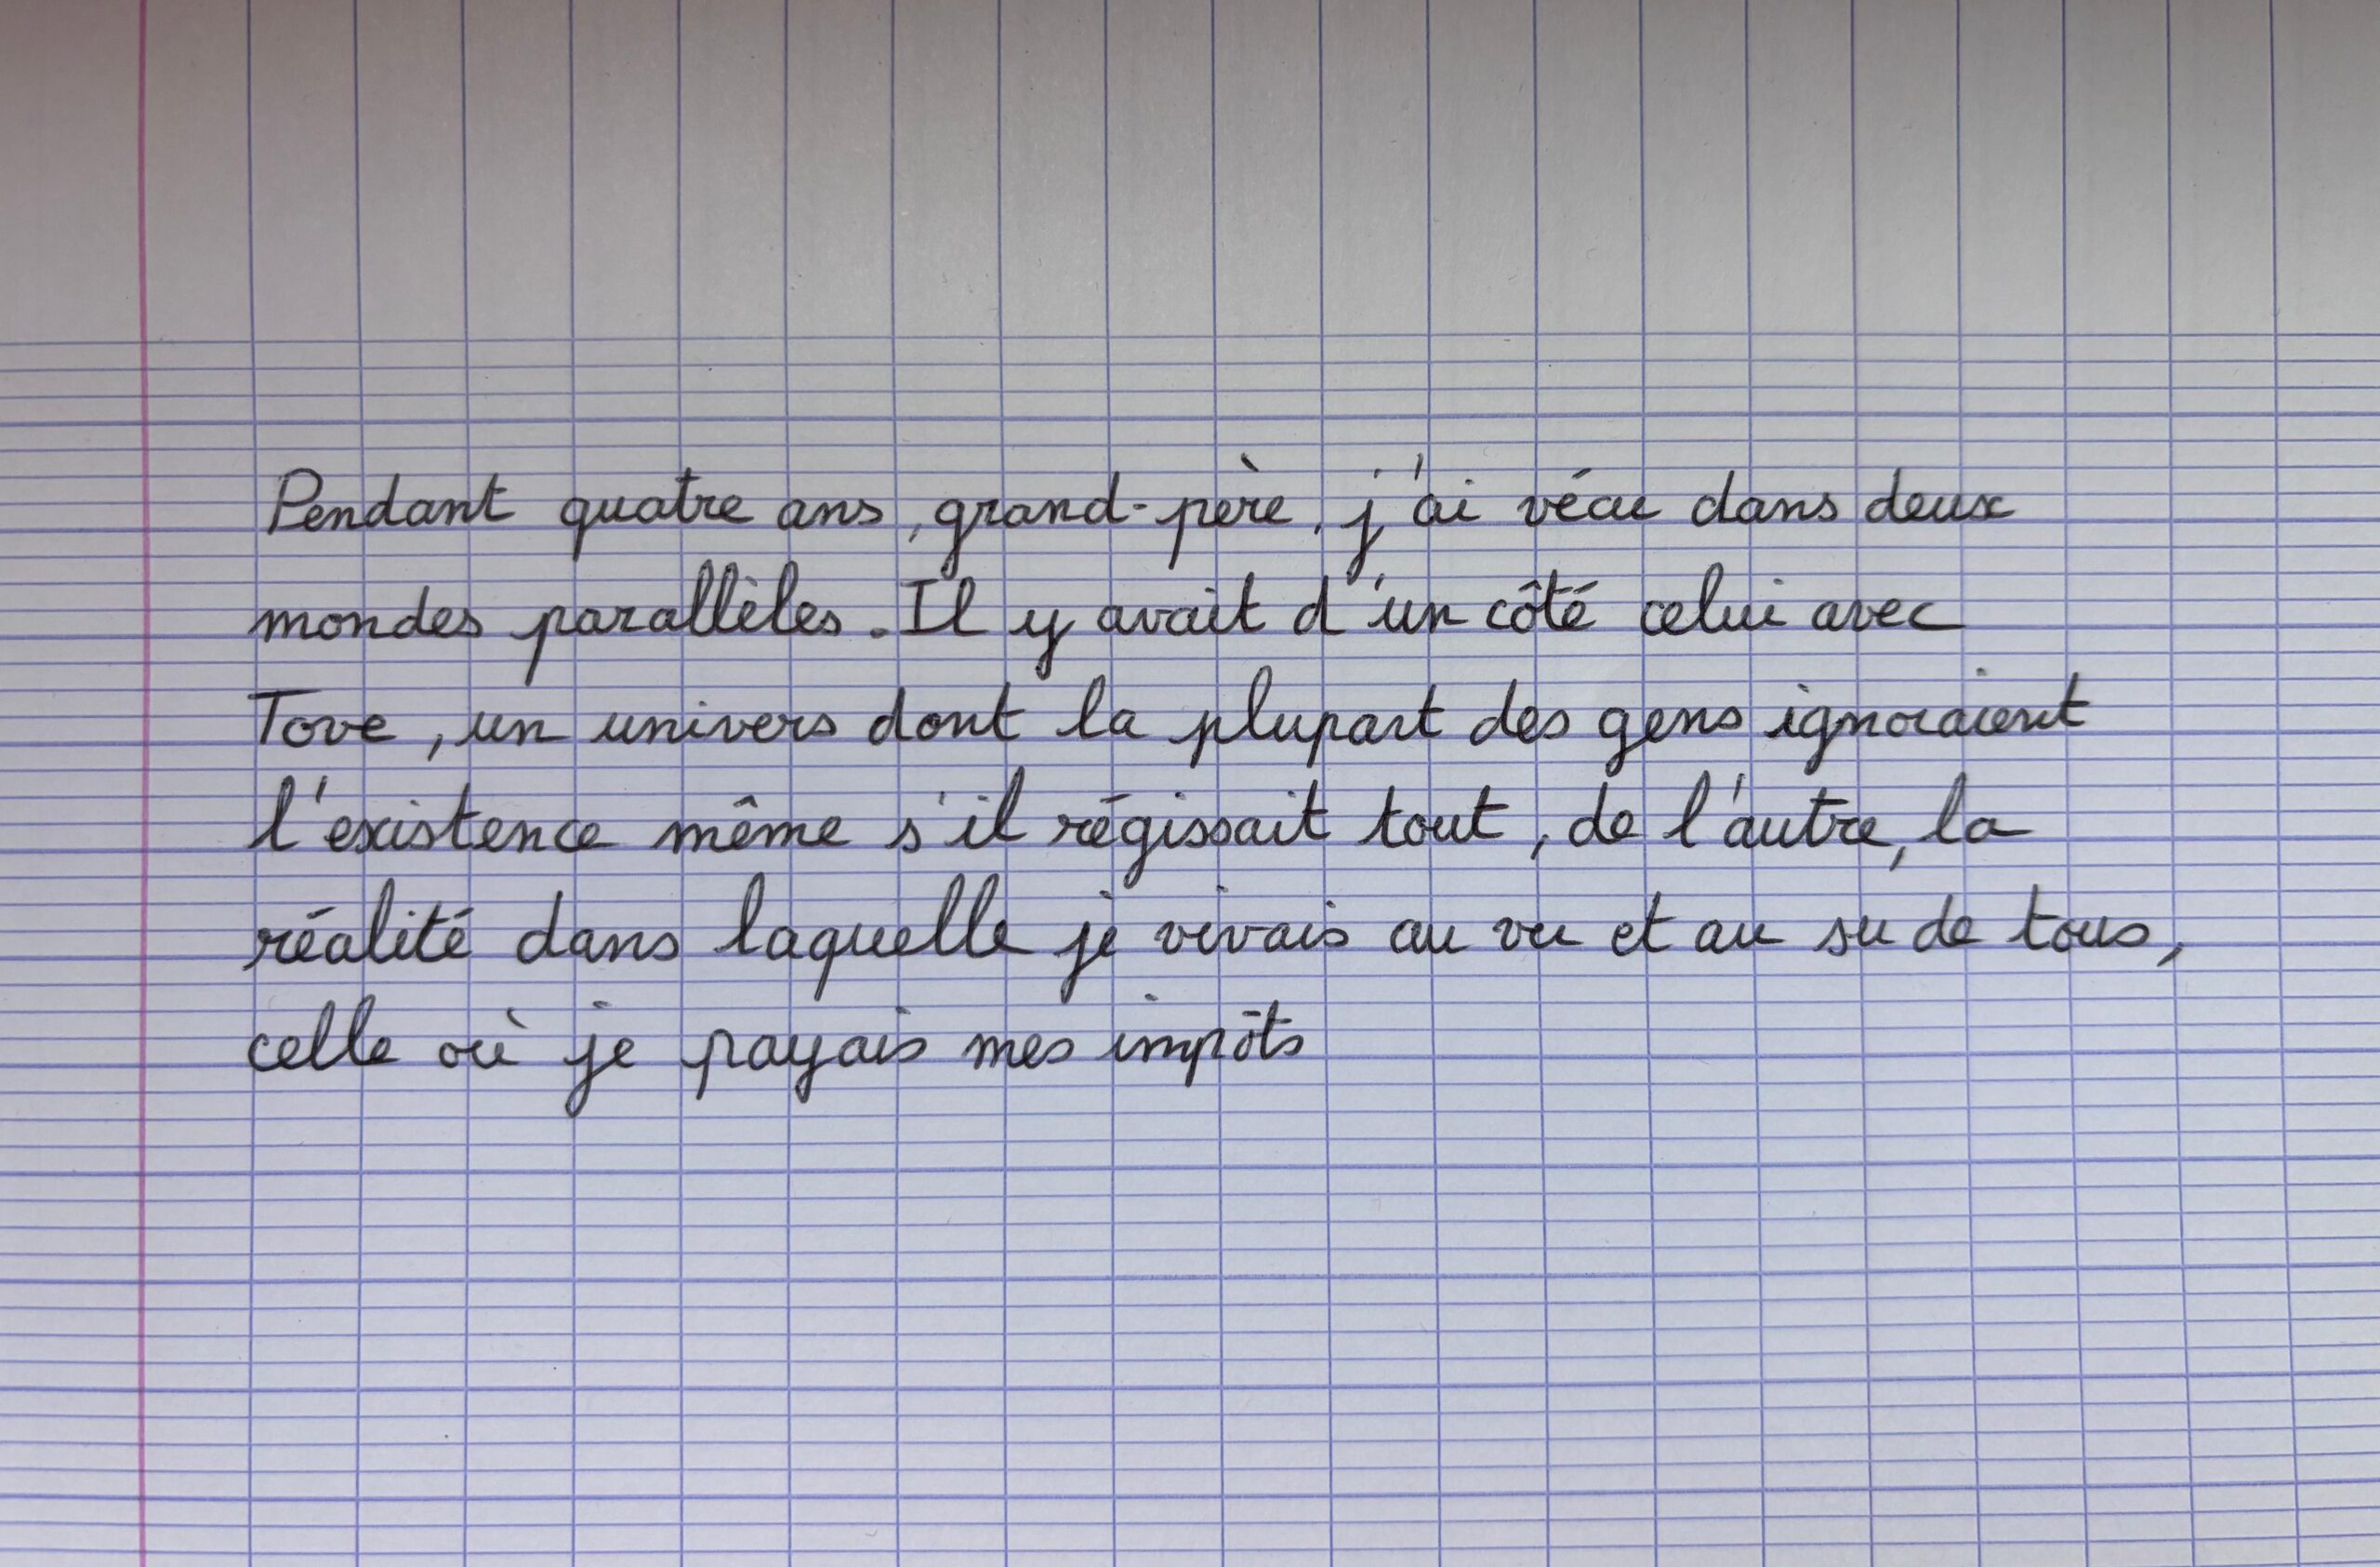 Pendant quatre ans, grand-père, j'ai vécu dans deux
mondes parallèles. Il y avait d'un côté celui avec
Tove, un univers dont la plupart des gens ignoraient
l'existence même s'il régissait tout, de l'autre, la
réalité dans laquelle je vivais au vu et au su de tous,
celle où je payais mes impôts